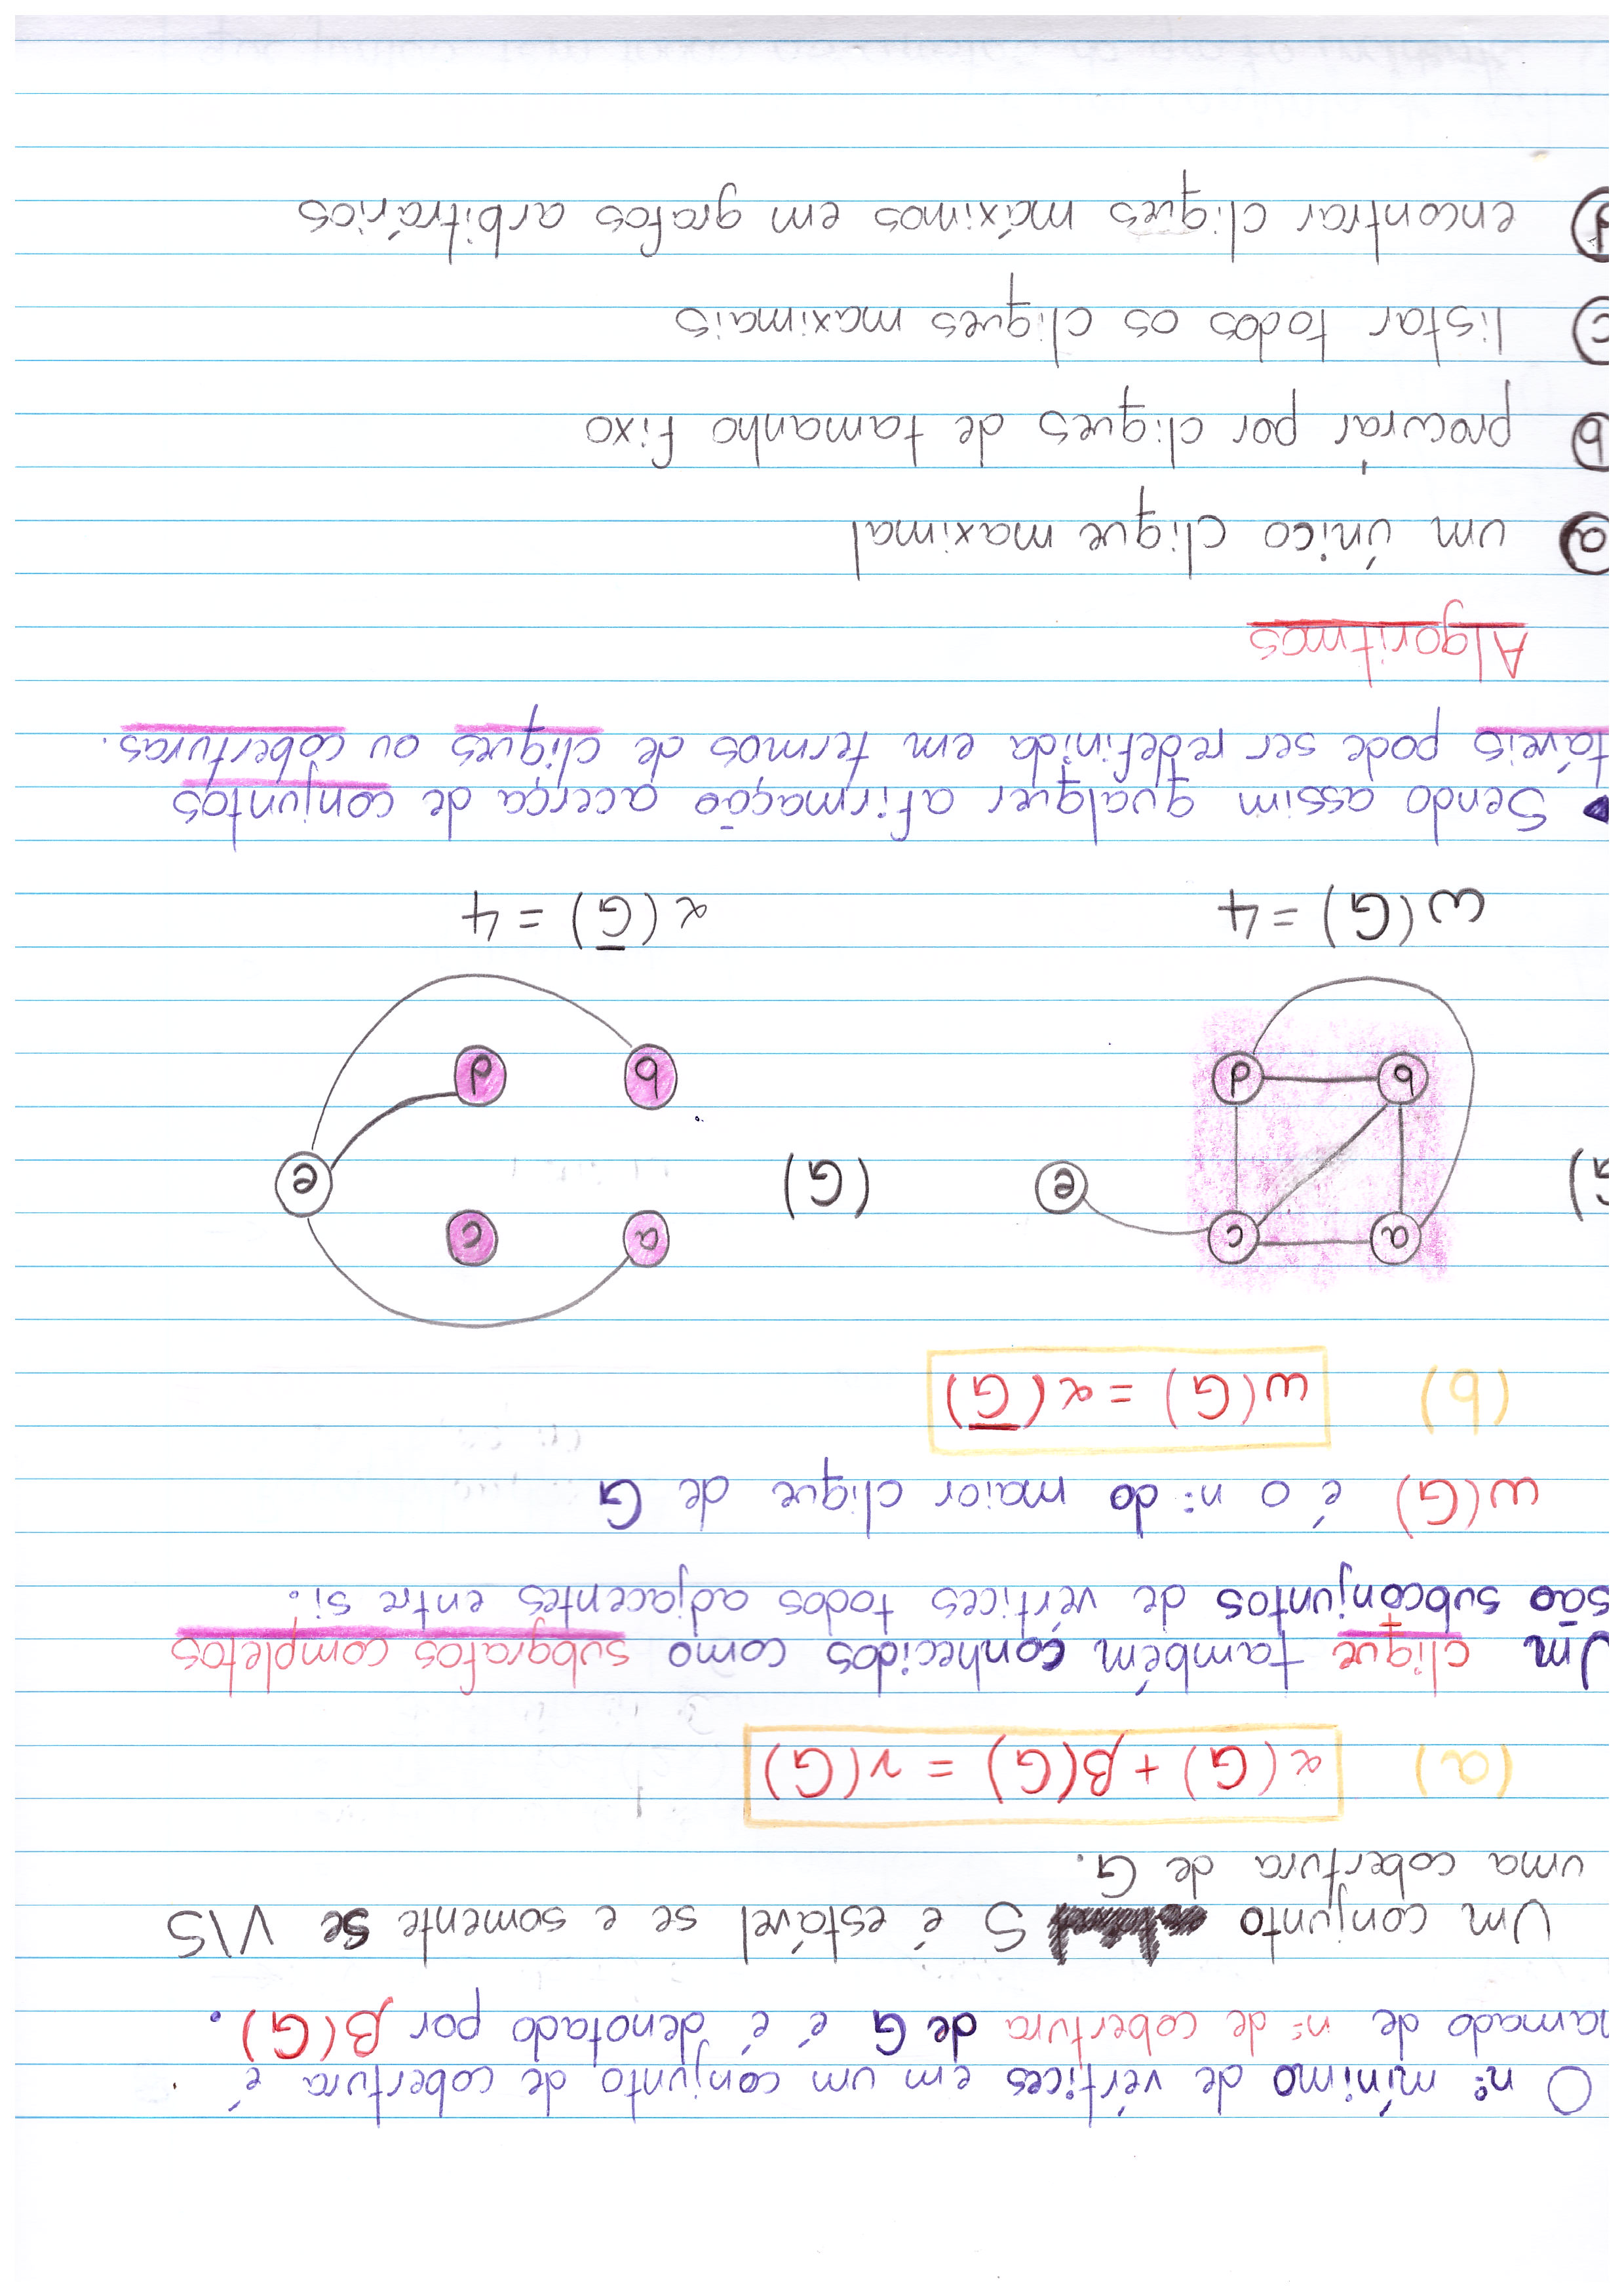 O nº mínimo de vértices em um conjunto de cobertura é
hamado de nº de cobertura de G é é denotado por β(G).
Um conjunto S é estável se e somente se V\S
uma cobertura de G.
(a) α(G) + β(G) = ν(G)
Um clique também conhecidos como subgrafos completos
são subconjuntos de vértices todos adjacentes entre si.
ω(G) é o nº do maior clique de G
(b) ω(G) = α(G̅)
a c
e
b d
G)
(G)
a c
e
b d
ω(G) = 4 α(G̅) = 4
▶ Sendo assim qualquer afirmação acerça de conjuntos
táveis pode ser redefinida em termos de cliques ou coberturas.
Algoritmos
a) um único clique maximal
b) procurár por cliques de tamanho fixo
c) listar todos os cliques maximais
d) encontrar cliques máximos em grafos arbitrários